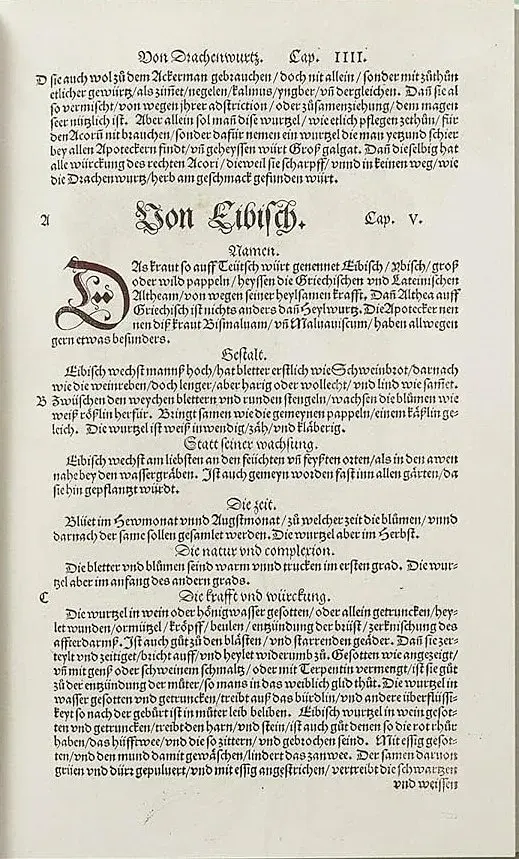 Von Drachenwurtz. Cap. IIII.
D sie auch wol zů dem Ackerman gebrauchen / doch nit allein / sonder mit zůthůn
etlicher gewürtz / als zim̃et / negelen / kalmus / yngber / vñ dergleichen. Dañ sie al
so vermischt / von wegen jhrer adstriction / oder zůsamenziehung / dem magen
seer nützlich ist. Aber allein sol man dise wurtzel / wie etlich pflegen zethůn / für
den Acorũ nit brauchen / sonder dafür nemen ein wurtzel die man yetzund schier
bey allen Apoteckern findt / vñ geheyssen würt Groß galgat. Dañ dieselbig hat
alle würckung des rechten Acori / dieweil sie scharpff / vnnd in keinen weg / wie
die Drachenwurtz / herb am geschmack gefunden würt.
A Von Eibisch. Cap. V.
Namen.
DAs kraut so auff Teütsch würt genennet Eibisch / Ybisch / groß
oder wild pappeln / heyssen die Griechischen vnd Lateinischen
Altheam / von wegen seiner heylsamen krafft. Dañ Althea auff
Griechisch ist nichts anders dañ Heylwurtz. Die Apotecker nen
nen diß kraut Bismaluam, vñ Maluauiscum / haben allwegen
gern etwas besunders.
Gestalt.
Eibisch wechst manns hoch / hat bletter erstlich wie Schweinbrot / darnach
wie die weinreben / doch lenger / aber harig oder wollecht / vnd lind wie sam̃et.
B Zwüschen den weychen blettern vnd runden stengeln / wachsen die blůmen wie
weiß rößlin herfür. Bringt samen wie die gemeynen pappeln / einem käßlin ge-
leich. Die wurtzel ist weiß inwendig / zäh / vnd kläberig.
Statt seiner wachsung.
Eibisch wechst am liebsten an den feüchten vñ feyßten orten / als in den awen
nahe bey den wassergräben. Ist auch gemeyn worden fast inn allen gärten / da
sie hin gepflantzt würdt.
Die zeit.
Blüet im Hewmonat vnnd Augstmonat / zů welcher zeit die blůmen / vnnd
darnach der same sollen gesamlet werden. Die wurtzel aber im Herbst.
Die natur vnd complexion.
Die bletter vnd blůmen seind warm vnnd trucken im ersten grad. Die wur-
tzel aber im anfang des andern grads.
C Die krafft vnd würckung.
Die wurtzel in wein oder hönigwasser gesotten / oder allein getruncken / hey-
let wunden / ormützel / kröpff / beulen / entzündung der brüst / zerknischung des
affterdarmß. Ist auch gůt zů den blästen / vnd starrenden geäder. Dañ sie zer-
teylt vnd zeitiget / bricht auff / vnd heylet widerumb zů. Gesotten wie angezeigt /
vñ mit genß oder schweinem schmaltz / oder mit Terpentin vermengt / ist sie gůt
zů der entzündung der můter / so mans in das weiblich glid thůt. Die wurtzel in
wasser gesotten vnd getruncken / treibt auß das bürdlin / vnd andere überflüssi-
keyt so nach der gebürt in můter leib beliben. Eibisch wurtzel in wein gesot-
ten vnd getruncken / treibt den harn / vnd stein / ist auch gůt denen so die rot rhůr
haben / das hüfftwee / vnd die so zittern / vnd gebrochen seind. Mit essig gesot-
ten / vnd den mund damit gewäschen / lindert das zanwee. Der samen daruon
grüen vnd dürr gepuluert / vnd mit essig angestrichen / vertreibt die schwartzen
vnd weissen